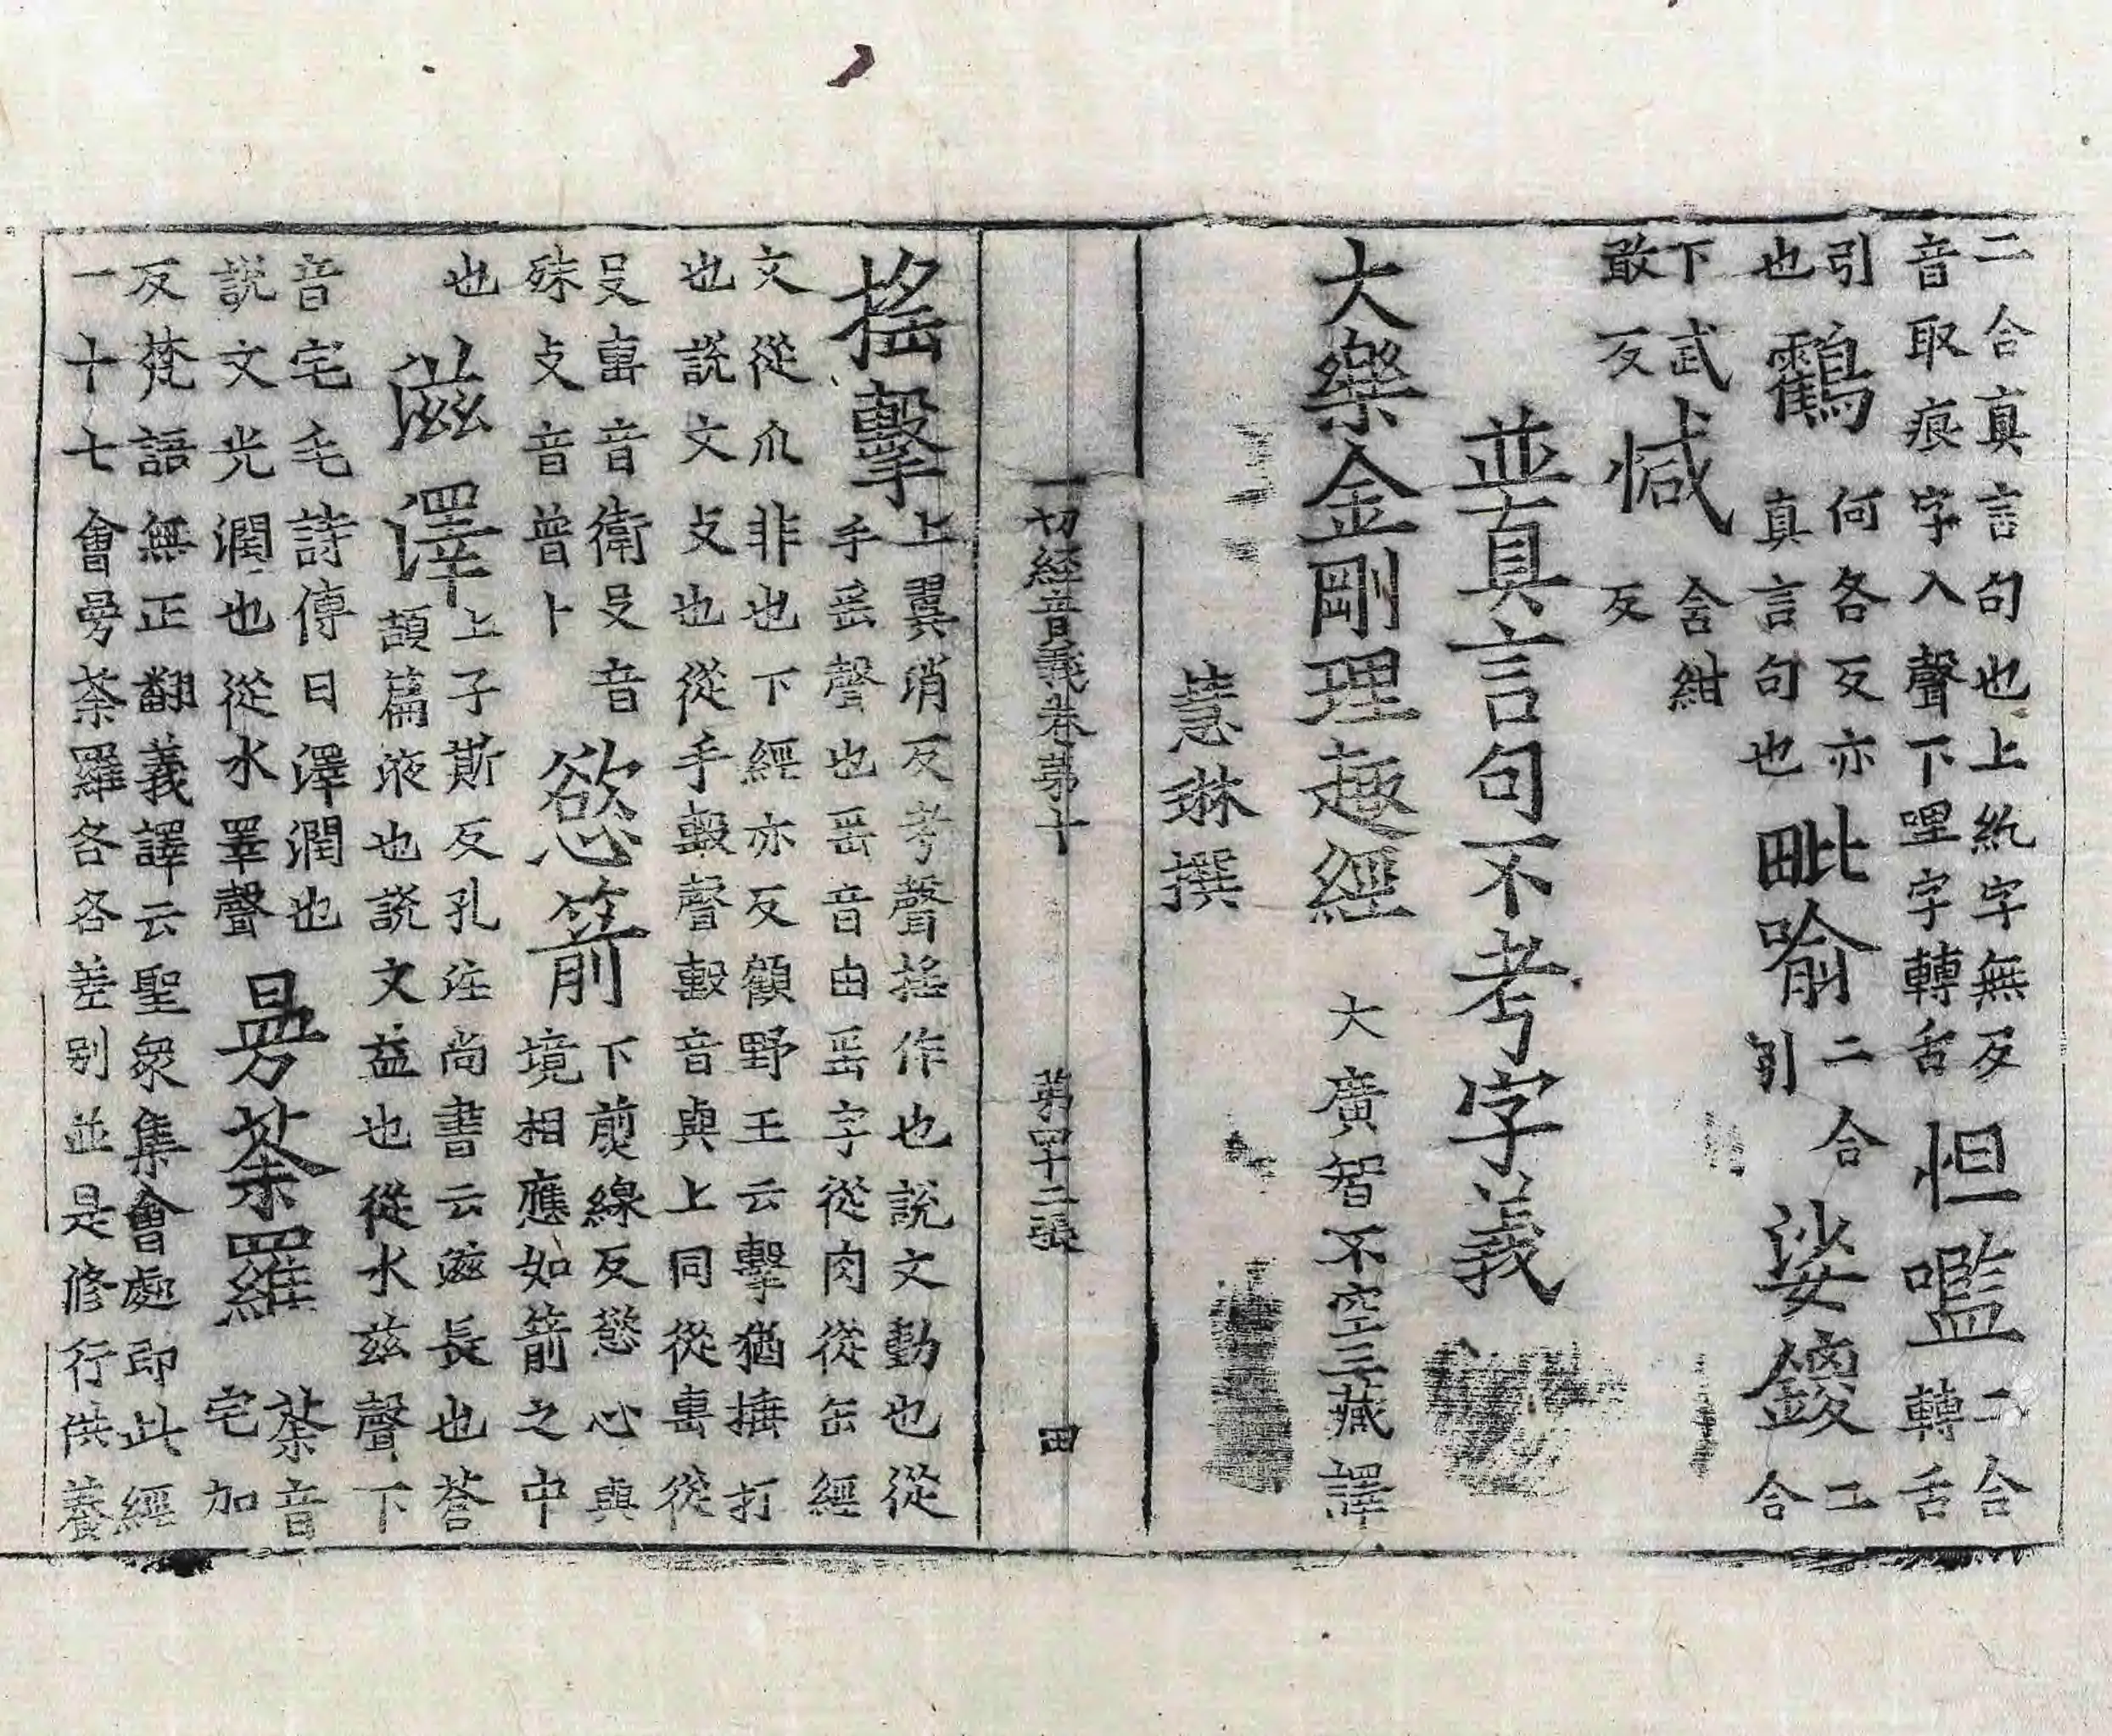 二合真言句也上紇字無反
音取痕字入聲下哩字轉舌
怛囕
二合
轉舌
引
也
鸖
何各反亦
真言句也
毗喻
二合
引
娑鑁
二
合
下武
敢反
憾
含紺
反
並真言句不考字義
大樂金剛理趣經
大廣智不空三藏譯
慧琳撰
一切經音義卷第十
第四十二張
田
搖擊
上翼消反考聲搖作也說文動也從
手䍃聲也䍃音由䍃字從肉從缶經
文從爪非也下經亦反顧野王云擊猶捶打
也說文攴也從手毄聲毄音與上同從軎從
殳軎音衛殳音
殊攴音普卜
也
慾箭
下煎線反慾心與
境相應如箭之中
滋澤
上子斯反孔注尚書云滋長也蒼
頡篇液也說文益也從水茲聲下
音宅毛詩傳曰澤潤也
說文光潤也從水睪聲
曼荼羅
荼音
宅加
反梵語無正翻義譯云聖衆集會處即此經
一十七會曼荼羅各各差别並是修行供養